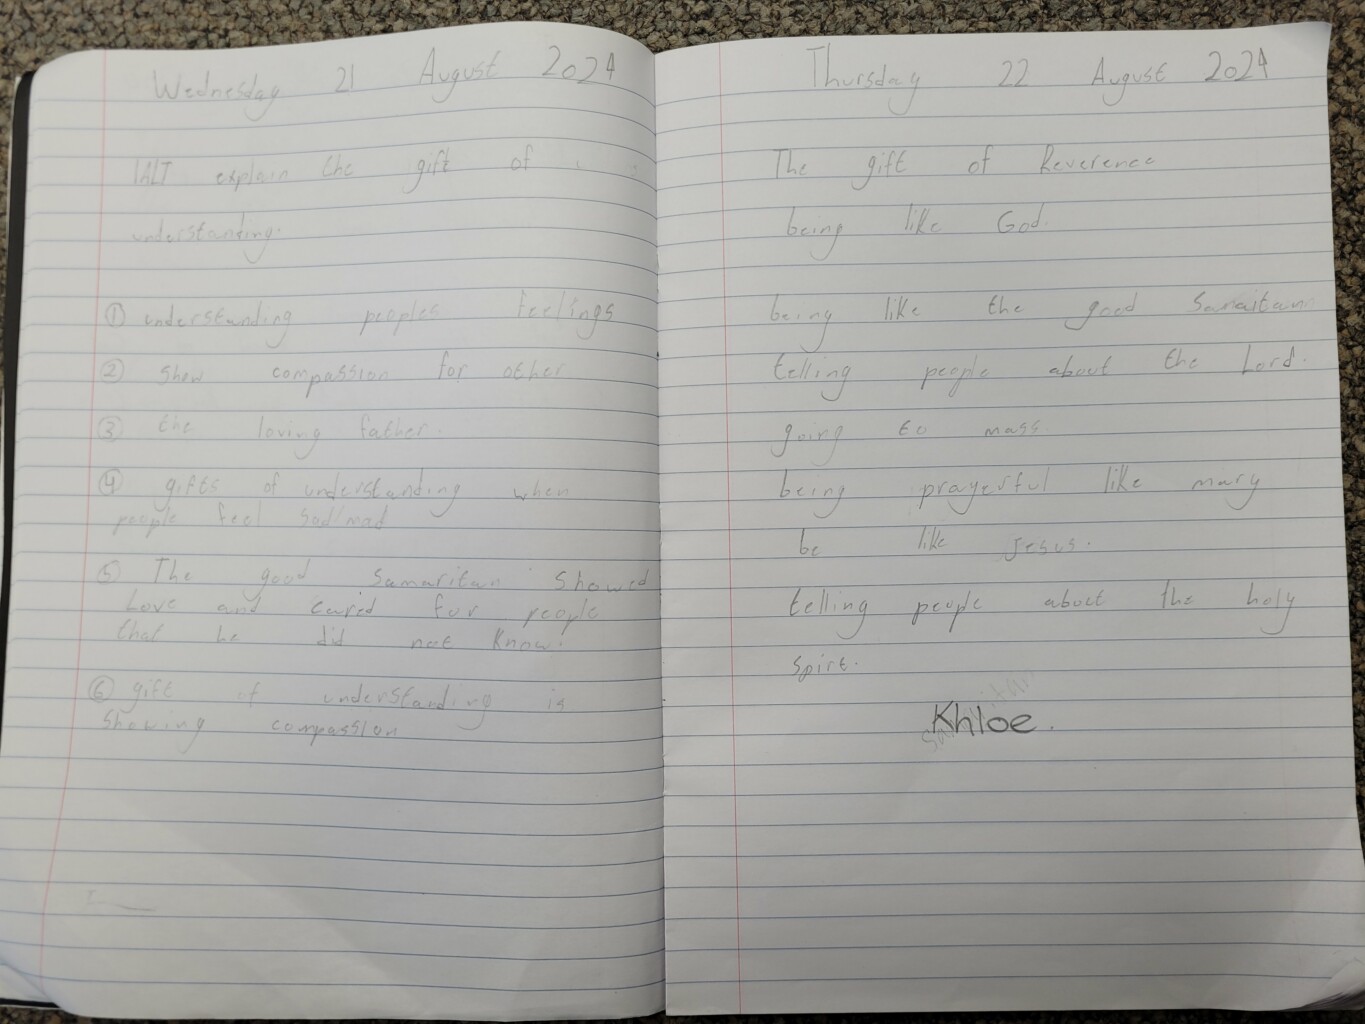 Wednesday 21 August 2024
IALT explain the gift of
understanding.
① understanding peoples feelings
② Show compassion for other
③ the loving father.
④ gifts of understanding when
people feel sad/mad
⑤ The good samaritan showed
Love and cared for people
that he did not know.
⑥ gift of understanding is
showing compassion
Thursday 22 August 2024
The gift of Reverence
being like God.
being like the good
telling people about the Lord.
going to mass.
being prayerful like mary
be like Jesus.
telling people about the holy
spirt.
samaritan
Khloe.